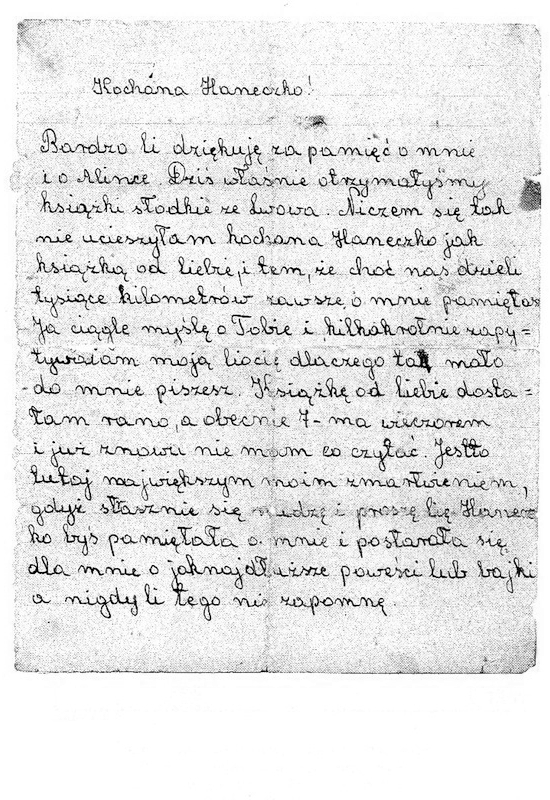 Kochana Haneczko!
Bardzo Ci dziękuję za pamięć o mnie
i o Alince. Dziś właśnie otrzymałyśmy
książki słodkie ze Lwowa. Niczem się tak
nie ucieszyłam kochana Haneczko jak
książką od Ciebie, i tem, że choć nas dzieli
tysiące kilometrów zawsze o mnie pamiętasz
Ja ciągle myślę o Tobie i kilkakrotnie zapy=
tywałam moją Ciocię dlaczego tak mało
do mnie piszesz. Książkę od Ciebie dosta=
łam rano, a obecnie 7-ma wieczorem
i już znowu nie mam co czytać. Jestto
tutaj największym moim zmartwieniem,
gdyż strasznie się nudzę i proszę Cię Hanecz
ko byś pamiętała o mnie i postarała się
dla mnie o jaknajdłuższe powieści lub bajki
a nigdy Ci tego nie zapomnę.